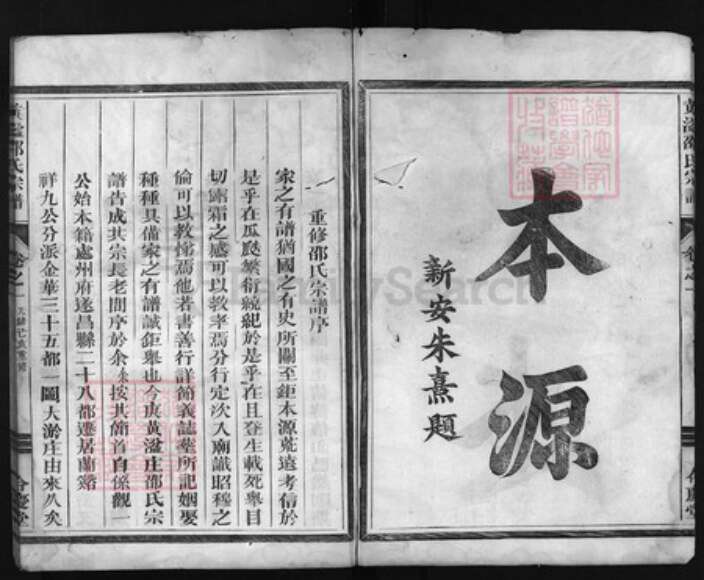 本源
新安朱熹題
重修邵氏宗譜序
家之有譜猶國之有史所關至鉅本源蓗遠考信於
是乎在瓜瓞繁衍統紀於是乎在且登生載死舉目
切霜之感可以教孝焉分行定次入廟識昭穆之
倫可以教悌焉他若書善行詳簡義誌塋所記姻娶
種種具備家之有譜誠鉅舉也今黃湓庄邵氏宗
譜告成其宗長老問序於余余按其簡首自係觀一
公始本籍處州府遂昌縣二十八都遷居蘭谿
祥九公分派金華三十五都一圖大淤庄由來久矣
黃湓邵氏宗譜
卷之一
黃湓邵氏宗譜
卷之一
合慶堂
FamilySearch